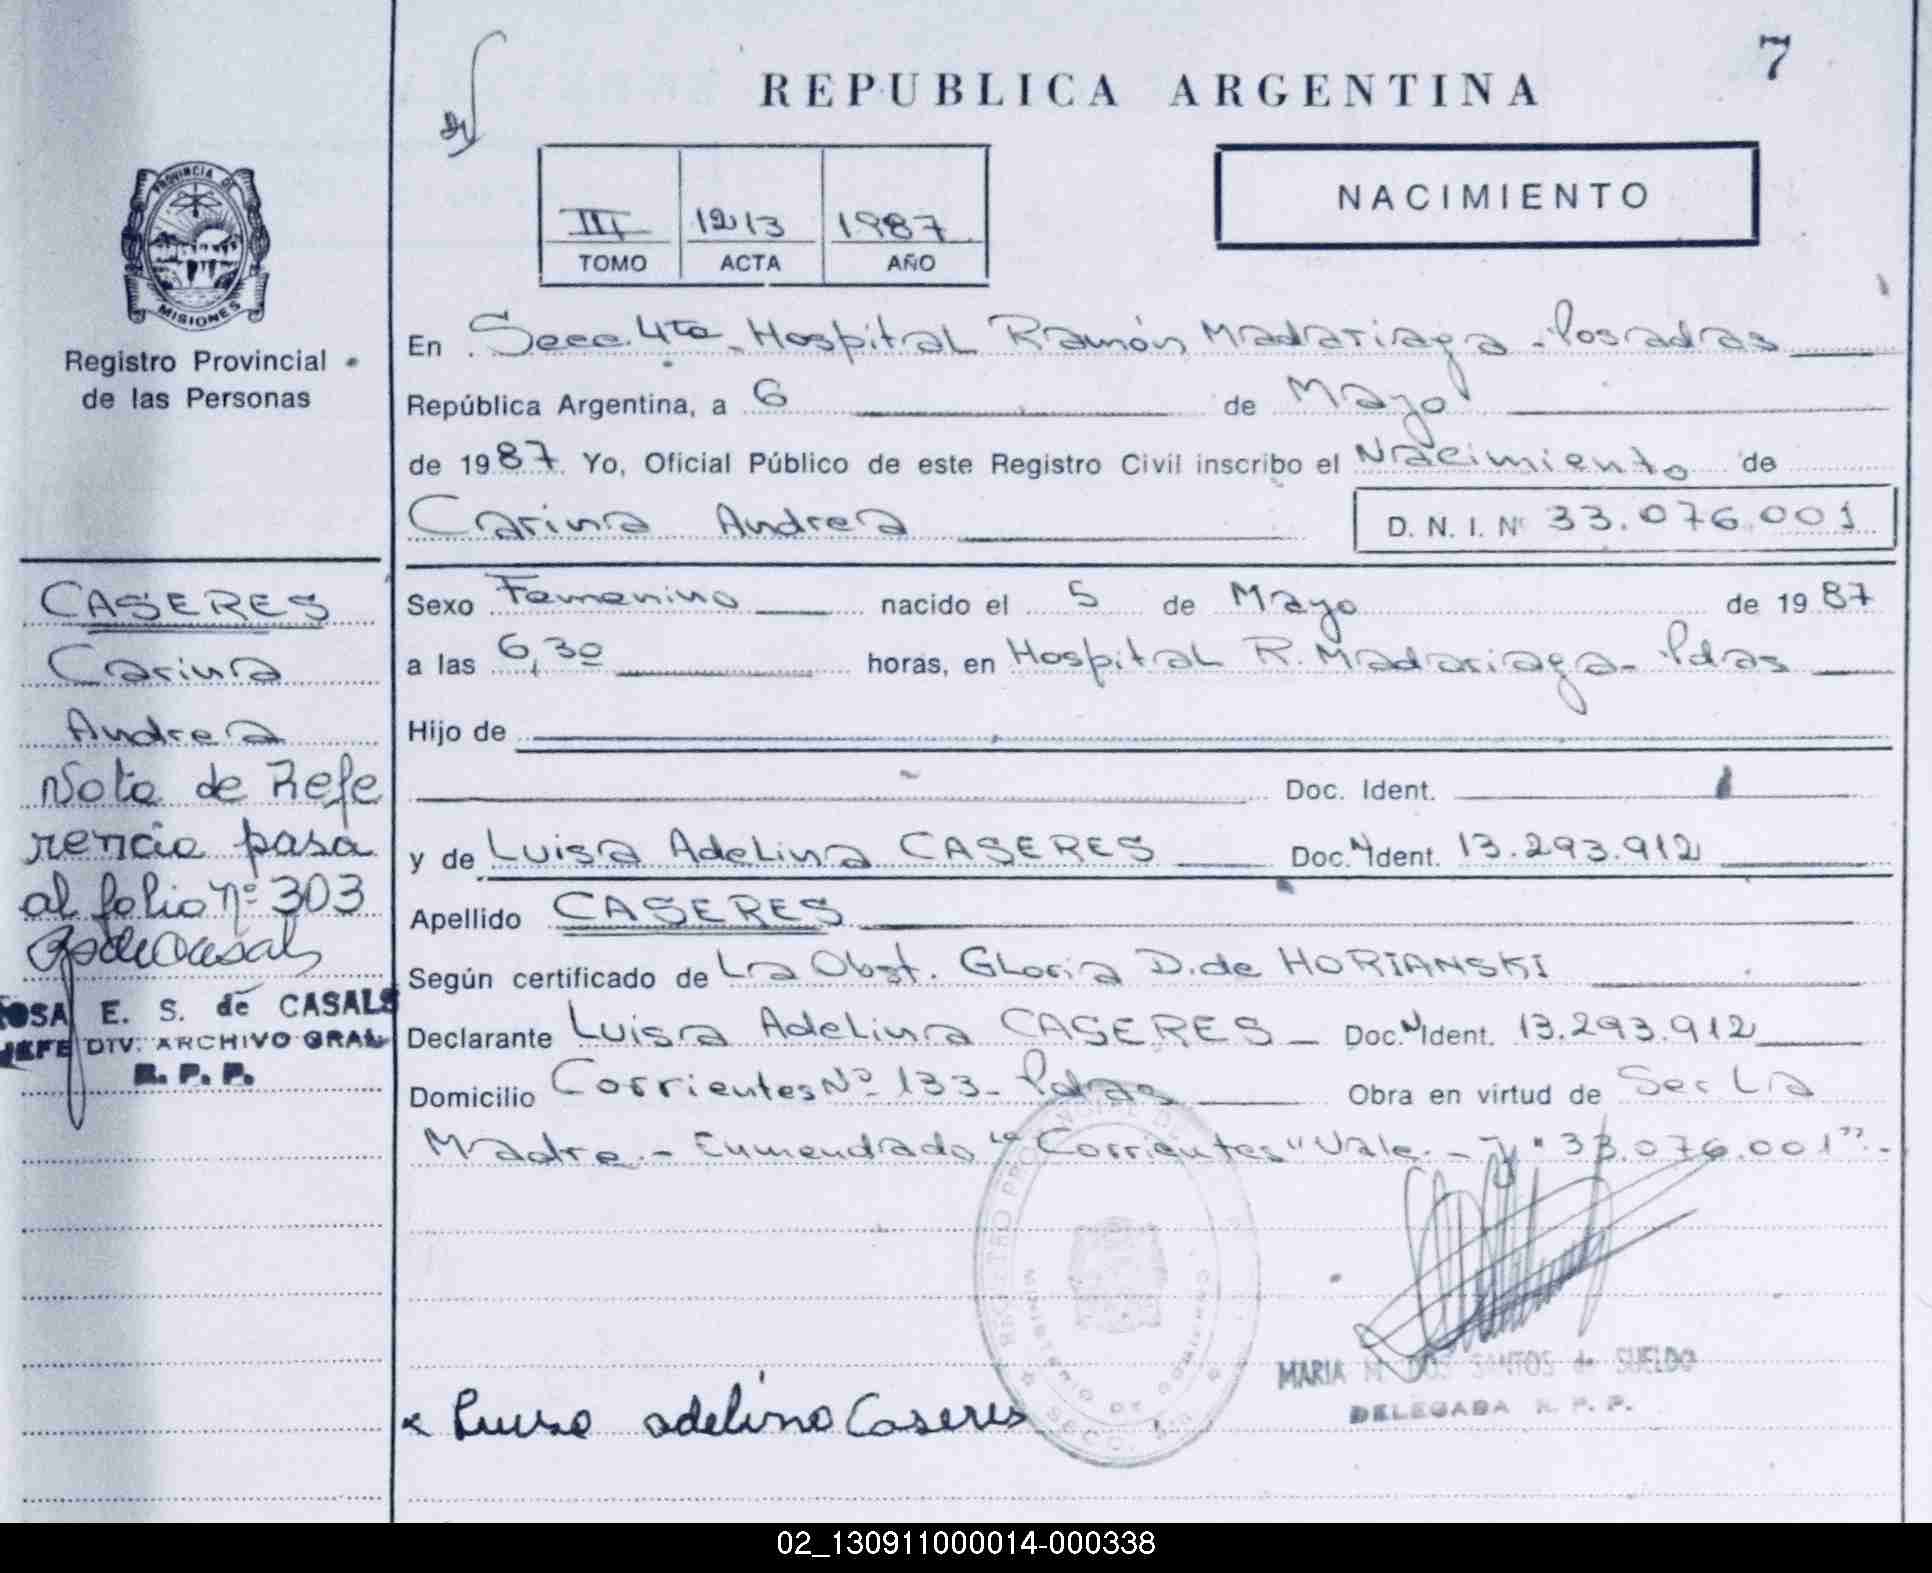 7
REPUBLICA ARGENTINA
NACIMIENTO
III 1213 1987
TOMO ACTA AÑO
PROVINCIA DE
MISIONES
Registro Provincial
de las Personas
En Secc. 4ta - Hospital Ramón Madariaga - Posadas
República Argentina, a 6 de Mayo
de 1987. Yo, Oficial Público de este Registro Civil inscribo el Nacimiento de
Carina Andrea D. N. I. Nº 33.076.001
Sexo Femenino nacido el 5 de Mayo de 1987
a las 6,30 horas, en Hospital R. Madariaga - Pdas
Hijo de
Doc. Ident.
y de Luisa Adelina CASERES Doc. Ident. 13.293.912
Apellido CASERES
Según certificado de La Obst. Gloria D. de HORIANSKI
Declarante Luisa Adelina CASERES - Doc. Ident. 13.293.912
Domicilio Corrientes Nº 133 - Pdas Obra en virtud de Ser La
Madre. - Enmendado "Corrientes" Vale. - y "33.076.001". -
CASERES
Carina
Andrea
Nota de Refe
rencia pasa
al folio nº 303
ROSA E. S. de CASALS
JEFE DIV. ARCHIVO GRAL
R. P. P.
REGISTRO PROVINCIAL DE
MINISTERIO DE GOBIERNO
SECC. 4ta
MARIA M. DOS SANTOS de SUELDO
DELEGADA R. P. P.
Luisa adelina Caseres
02_130911000014-000338